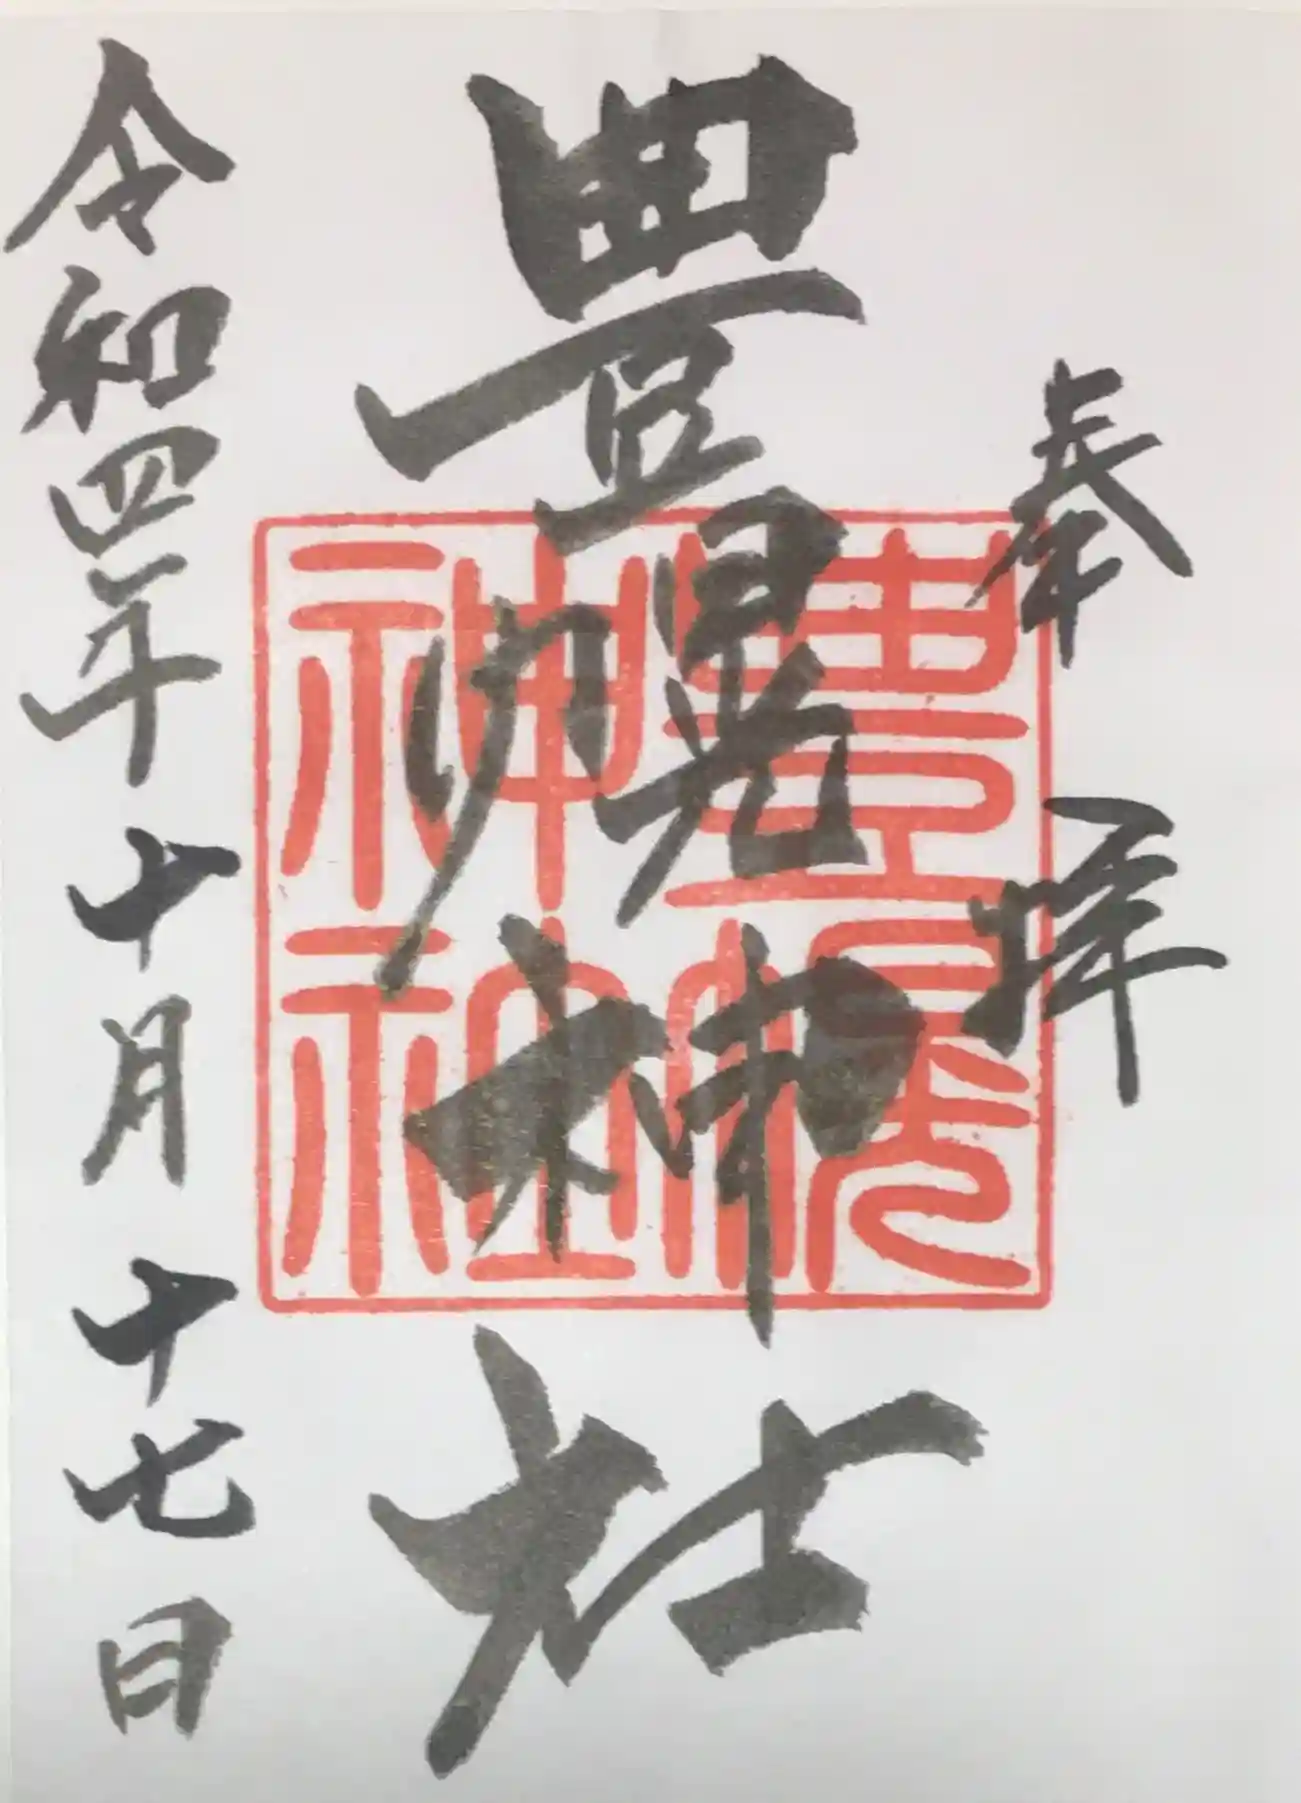 奉拝
豊幌神社
令和四年十月十七日
豊幌
神社